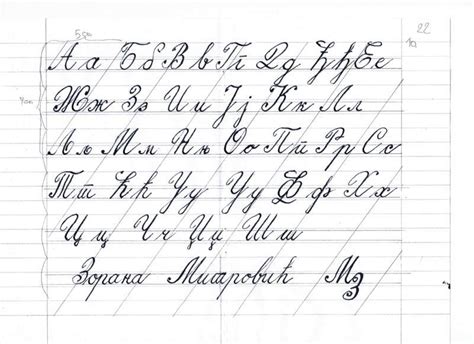 22
А а Б б В в Г г Д д Ђ ђ Е е
Ж ж З з И и Ј ј К к Л л
Љ љ М м Њ њ О о П п Р р С с
Т т Ћ ћ У у У у Ф ф Х х
Ц ц Ч ч Џ џ Ш ш
Зорана Митровић МЗ